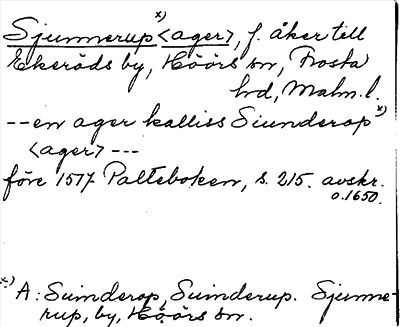 Sjunnerup x) <ager>, f. åker till
Ekeröds by, Höörs sn, Frosta
hd, Malm. l.
--en ager kalliss Siunderop x)
<ager> ---
före 1517 Palteboken, s. 215. avskr.
o. 1650.
x) A: Suinderop, Suinderup. Sjunne-
rup, by, Höörs sn.